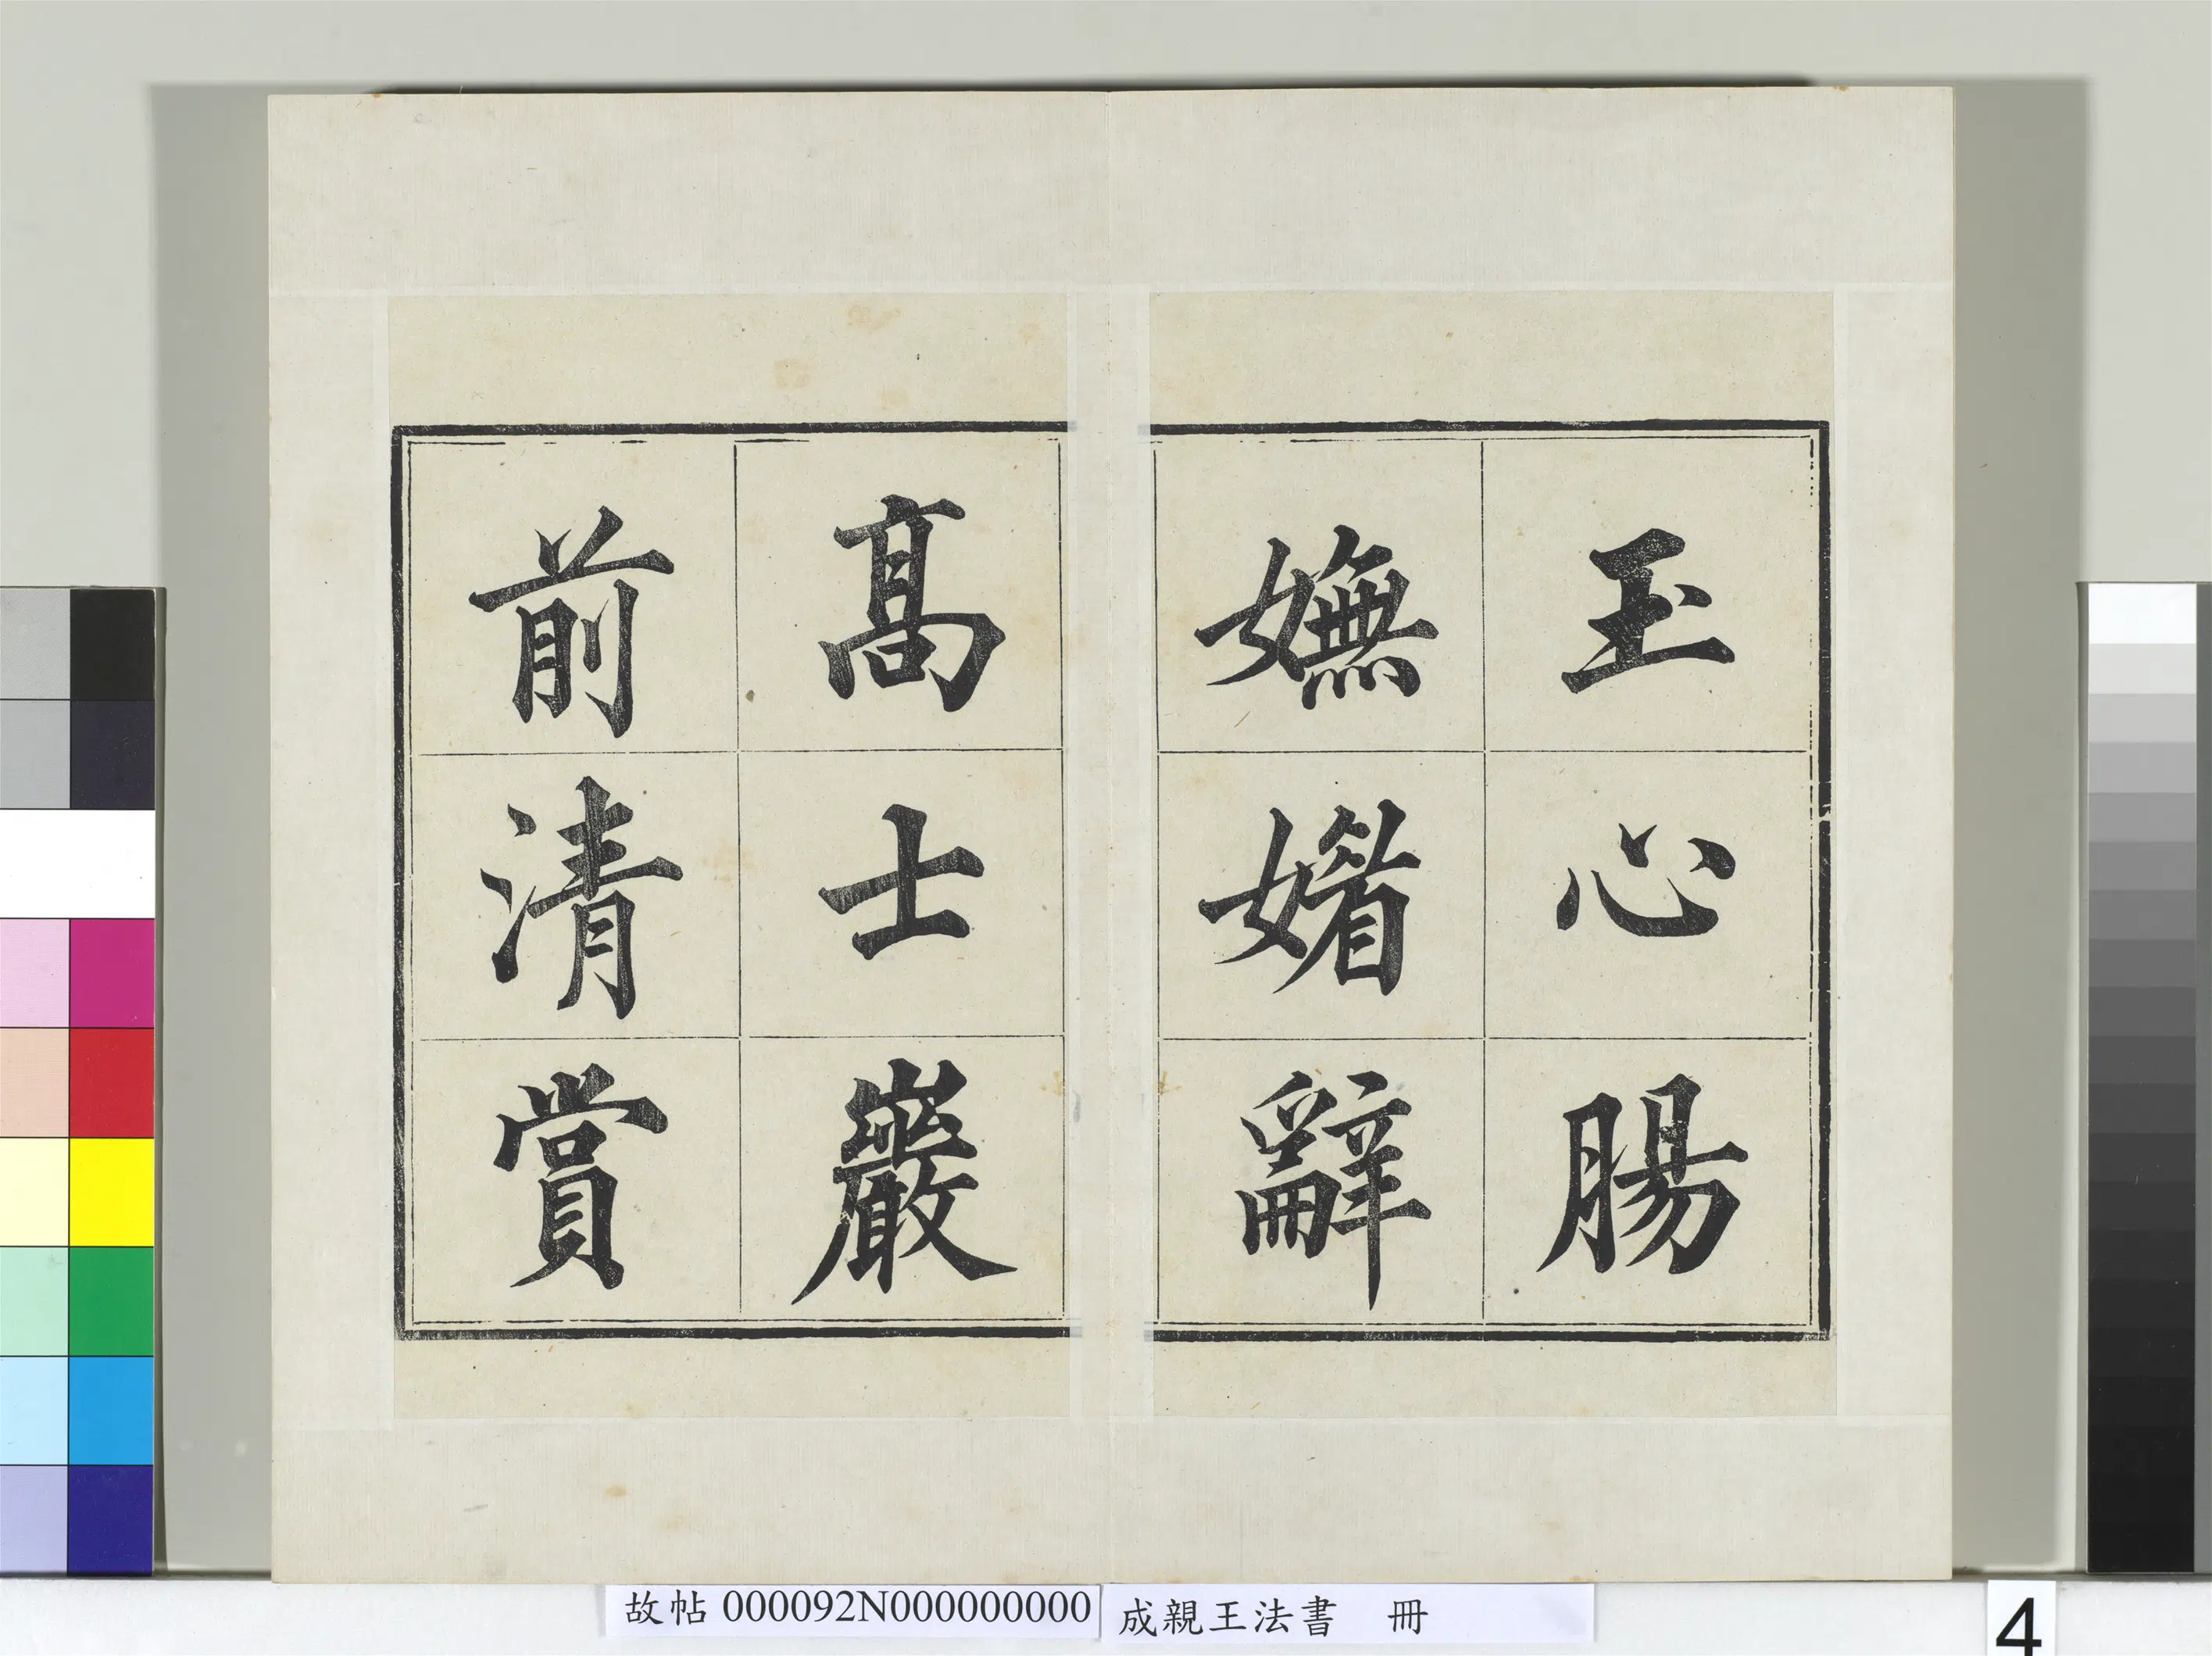 玉心腸
嫵媚辭
高士巖
前清賞
故帖 000092N000000000
成親王法書 冊
4